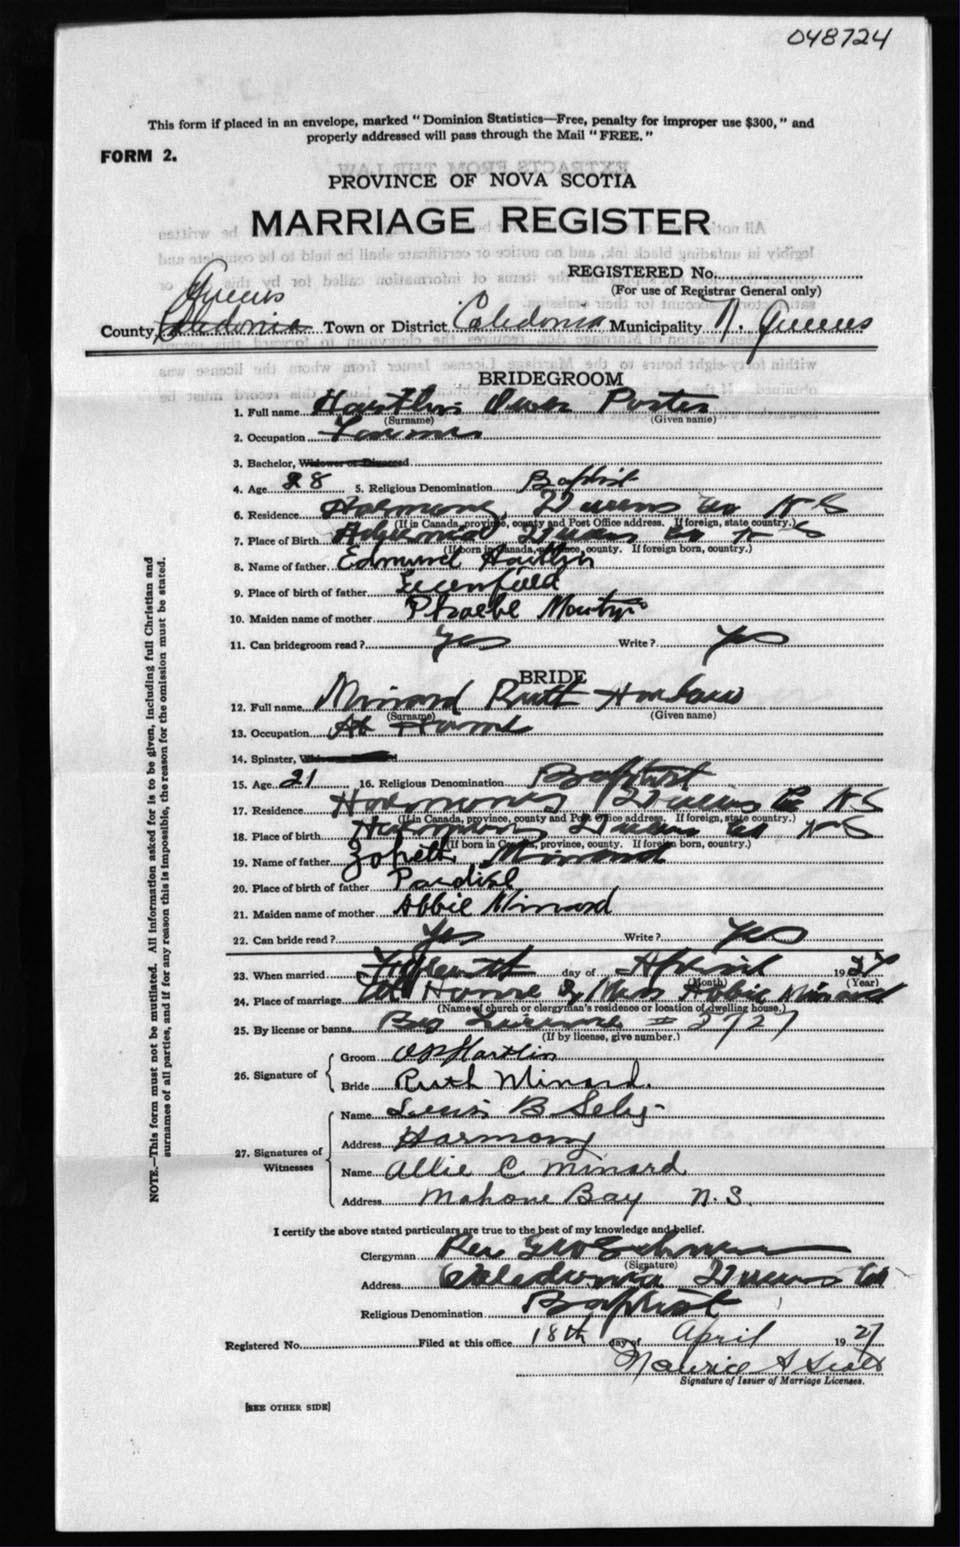 048724
This form if placed in an envelope, marked "Dominion Statistics—Free, penalty for improper use $300," and
properly addressed will pass through the Mail "FREE."
FORM 2.
PROVINCE OF NOVA SCOTIA
MARRIAGE REGISTER
REGISTERED No.
(For use of Registrar General only)
Queens
County Caledonia Town or District Caledonia Municipality N. Queens
BRIDEGROOM
1. Full name Hartlin Owen Porter
(Surname) (Given name)
2. Occupation Farmer
3. Bachelor, Widower or Divorced
4. Age 28 5. Religious Denomination Baptist
6. Residence Harmony, Queens Co N S
(If in Canada, province, county and Post Office address. If foreign, state country.)
7. Place of Birth Queens Co N S
(If born in Canada, province, county. If foreign born, country.)
8. Name of father Edmund Hartlin
9. Place of birth of father Greenfield
10. Maiden name of mother Phoebe
11. Can bridegroom read? Yes Write? Yes
BRIDE
12. Full name Minard Ruth Harlow
(Surname) (Given name)
13. Occupation At Home
14. Spinster,
15. Age 21 16. Religious Denomination Baptist
17. Residence Harmony Queens Co N S
(If in Canada, province, county and Post Office address. If foreign, state country.)
18. Place of birth Harmony Queens Co N S
(If born in Canada, province, county. If foreign born, country.)
19. Name of father Minard
20. Place of birth of father Pardise
21. Maiden name of mother Abbie Minard
22. Can bride read? Yes Write? Yes
23. When married day of April 1927
(Month) (Year)
24. Place of marriage At Home of Mrs Abbie Minard
(Name of church or clergyman's residence or location of dwelling house.)
25. By license or banns By License # 3727
(If by license, give number.)
26. Signature of
Groom O P Hartlin
Bride Ruth Minard.
27. Signatures of Witnesses
Name Lewis B Seley
Address Harmony
Name Allie C. Minard
Address Mahone Bay N.S.
I certify the above stated particulars are true to the best of my knowledge and belief.
Clergyman Rev
(Signature)
Address Caledonia Queens Co
Religious Denomination Baptist
Registered No. Filed at this office 18th day of April 1927
Maurice A Scott
Signature of Issuer of Marriage Licenses.
[SEE OTHER SIDE]
NOTE.—This form must not be mutilated. All information asked for is to be given, including full Christian and
surnames of all parties, and if for any reason this is impossible, the reason for the omission must be stated.